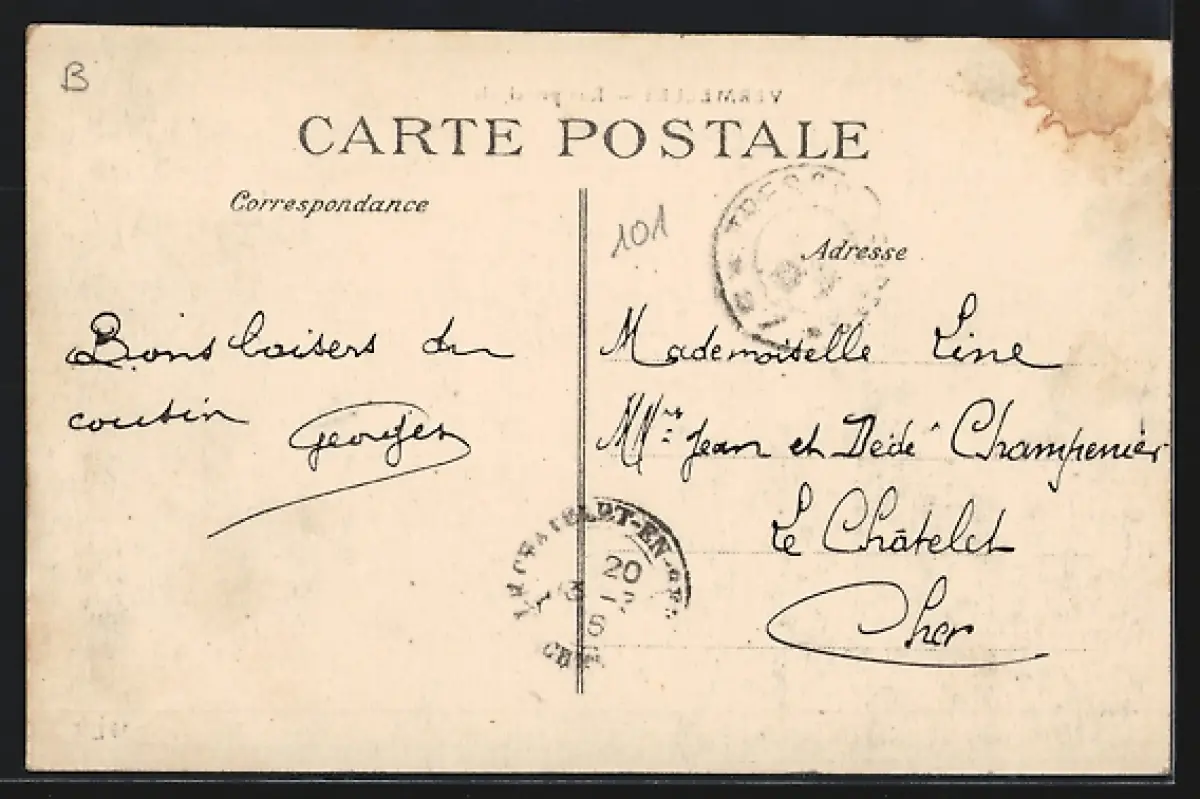 B
CARTE POSTALE
Correspondance
101
Adresse
Bons baisers du
cousin Georges
Mademoiselle Line
MMrs Jean et Dédé Champenier
Le Châtelet
Cher
LE CHATELET-EN-
20